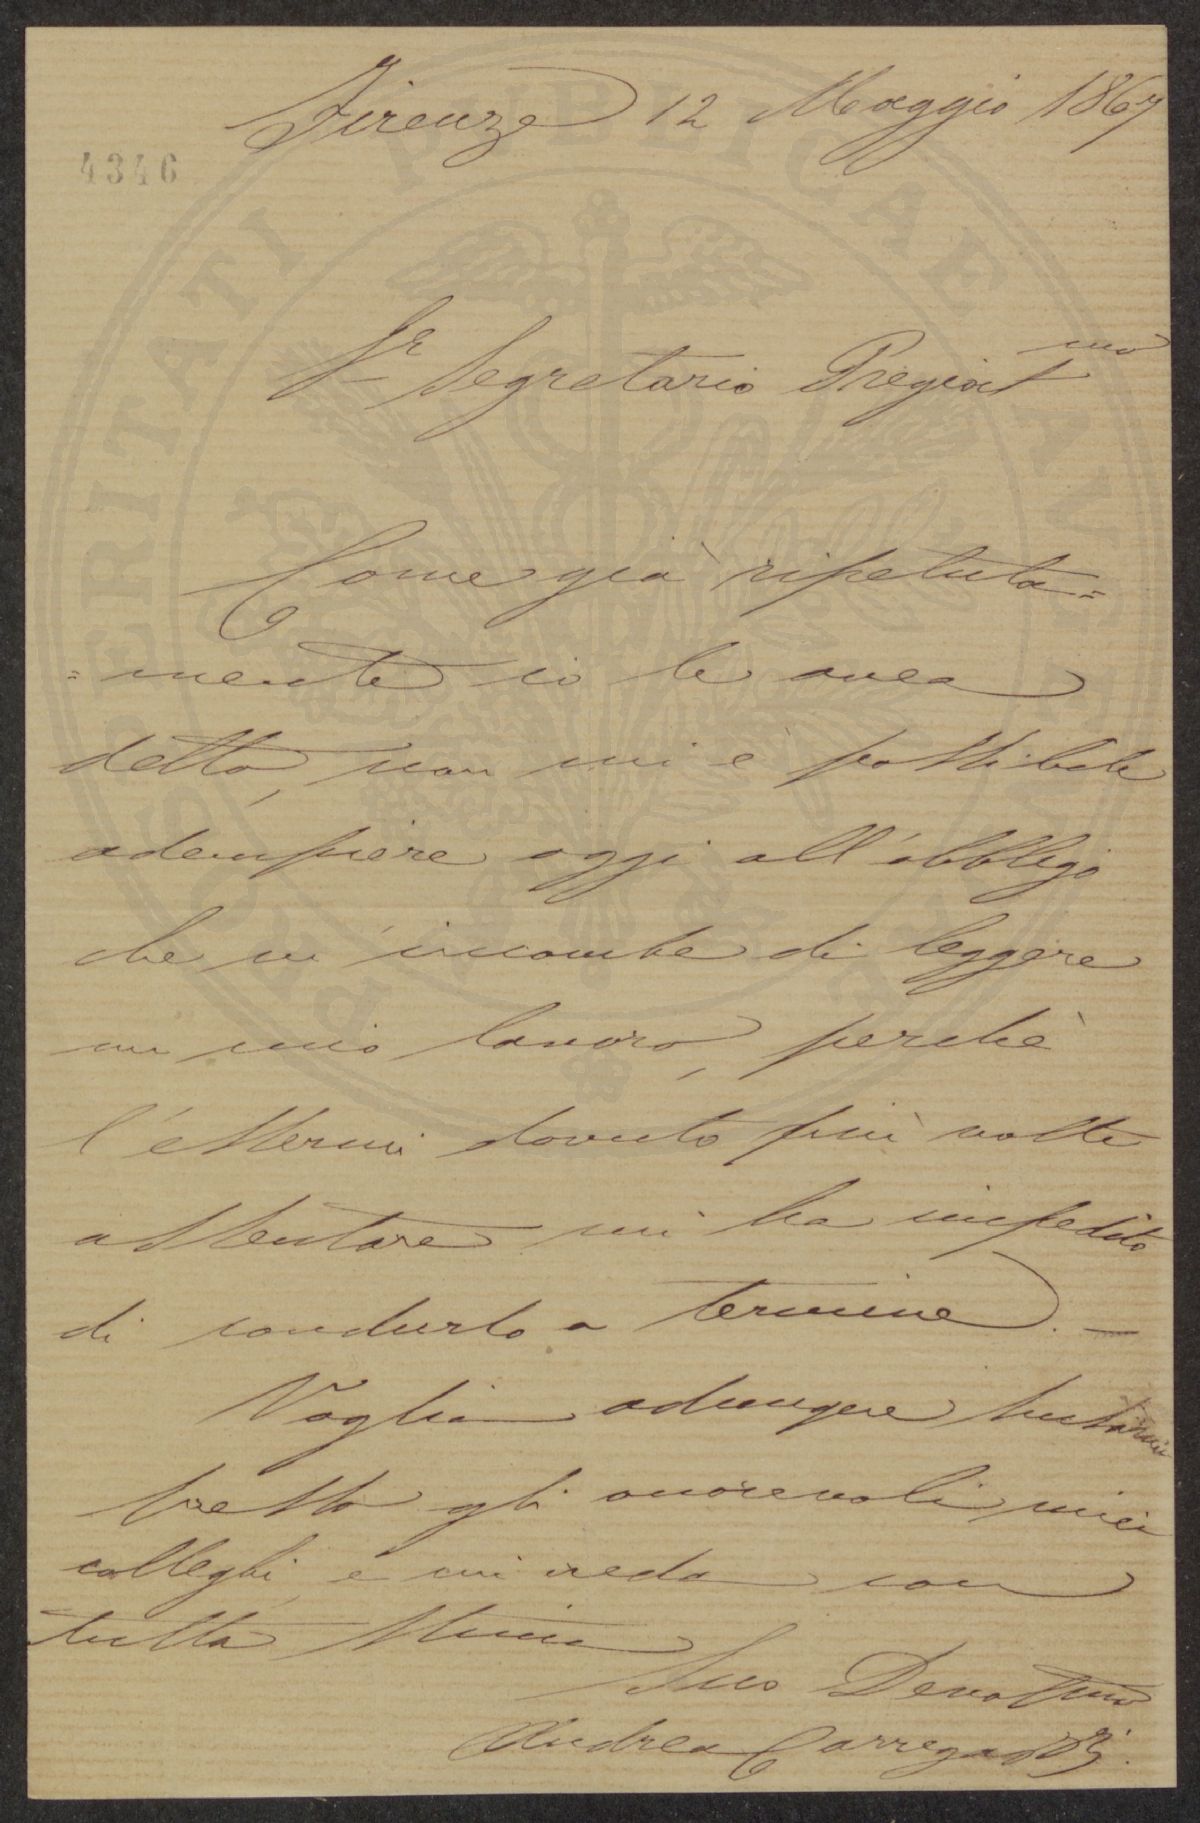 Firenze 12 Maggio 1867
4346
Sr Segretario Pregiatmo
Come già ripetuta=
=mente io le avea
detto, non mi è possibile
adempiere oggi all'obbligo
che m'incombe di leggere
un mio lavoro, perchè
l'essermi dovuto più volte
assentare mi ha impedito
di condurlo a termine. —
Voglia
presso gli onorevoli miei
colleghi, e mi creda con
tutta stima
Suo Devotmo
Andrea
PROSPERITATI PUBLICAE AUGENDAE